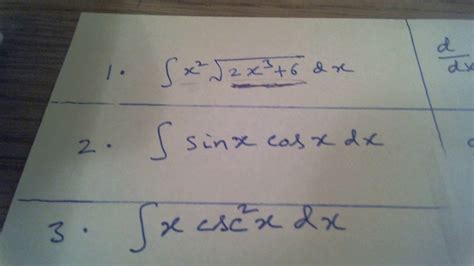 1. ∫ x² √(2x³+6) dx
d/dx
2. ∫ sinx cosx dx
3. ∫ x csc²x dx